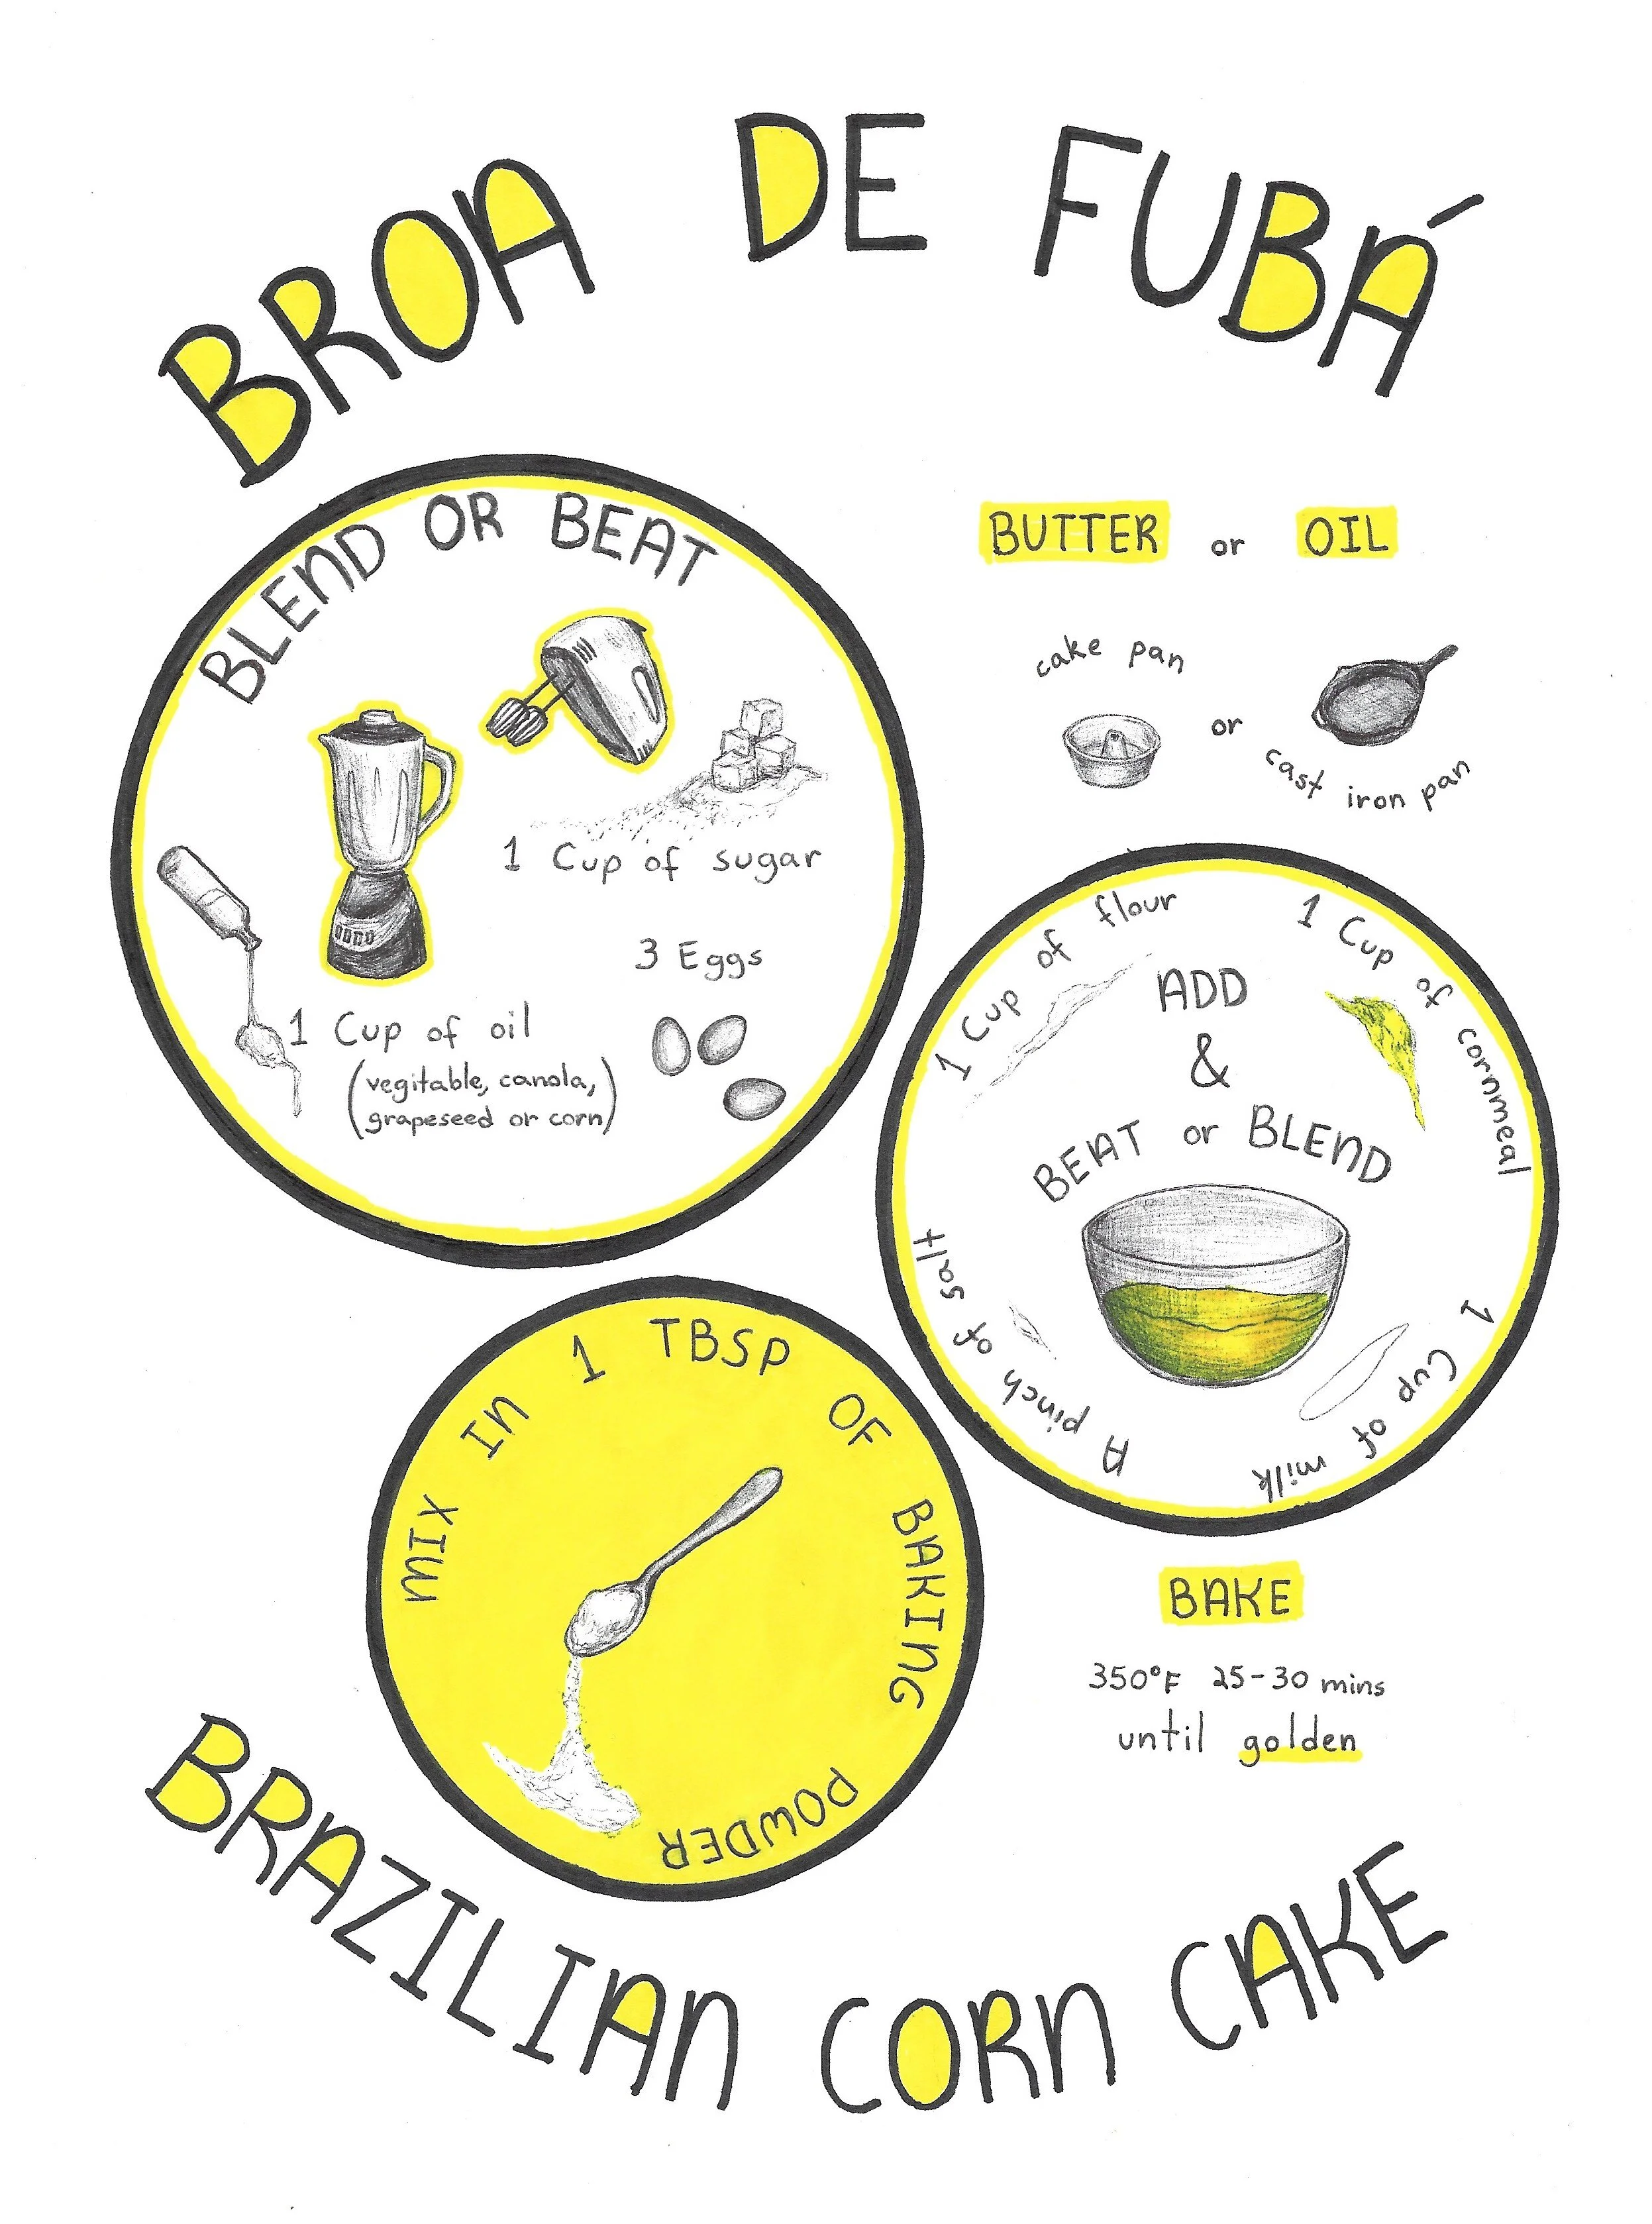 BROA DE FUBÁ
BLEND OR BEAT
1 Cup of sugar
3 Eggs
1 Cup of oil
(vegitable, canola,
grapeseed or corn)
BUTTER or OIL
cake pan
or
cast iron pan
1 Cup of flour
1 Cup of cornmeal
ADD
&
BEAT or BLEND
A pinch of salt
1 Cup of milk
MIX IN 1 TBSP OF BAKING POWDER
BAKE
350°F 25-30 mins
until golden
BRAZILIAN CORN CAKE